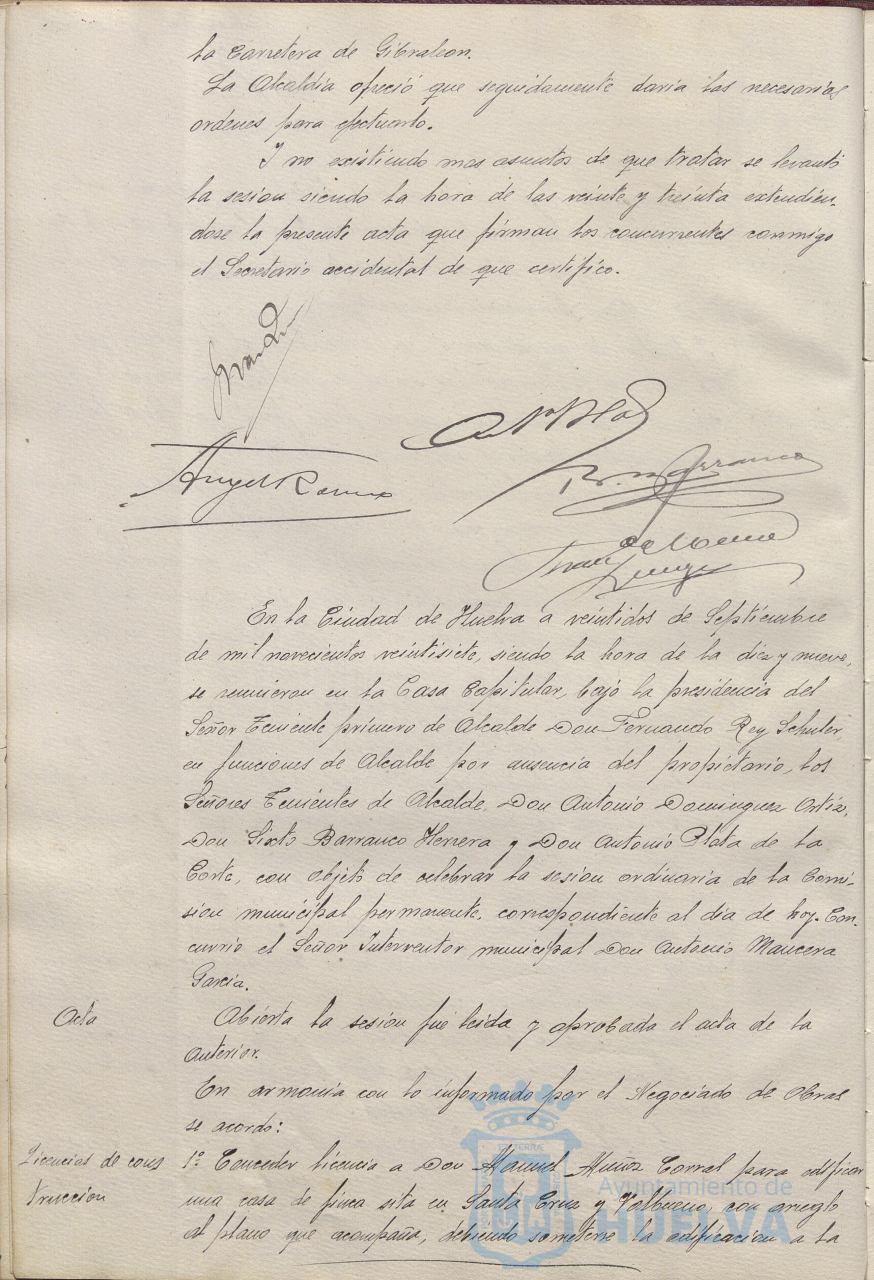 la Carretera de Gibraleon.
La Alcaldia ofreció que seguidamente daria las necesarias
ordenes para efectuarlo.
Y no existiendo mas asuntos de que tratar se levantó
la sesion siendo la hora de las veinte y treinta extendien-
dose la presente acta que firman los concurrentes conmigo
el Secretario accidental de que certifico.
Angel Romeu
R. Barranco
En la Ciudad de Huelva a veintidos de Septiembre
de mil novecientos veintisiete, siendo la hora de la diez y nueve,
se reunieron en la Casa Capitular, bajo la presidencia del
Señor Teniente primero de Alcalde Don Fernando Rey Schuler
en funciones de Alcalde por ausencia del propietario, los
Señores Tenientes de Alcalde, Don Antonio Dominguez Ortiz,
Don Sixto Barranco Herrera y Don Antonio Plata de la
Corte, con objeto de celebrar la sesion ordinaria de la Comi-
sion municipal permanente, correspondiente al dia de hoy. Con-
currio el Señor Interventor municipal Don Antonio Mancera
Garcia.
Acta
Abierta la sesion fue leida y aprobada el acta de la
anterior.
En armonia con lo informado por el Negociado de Obras
se acordo:
Licencias de cons
truccion
1º Conceder licencia a Don Manuel Muñoz Corral para edificar
una casa de finca sita en Santa Cruz y Valbueno, con arreglo
al plano que acompaña, debiendo someterse la edificacion a la
Ayuntamiento de
HUELVA